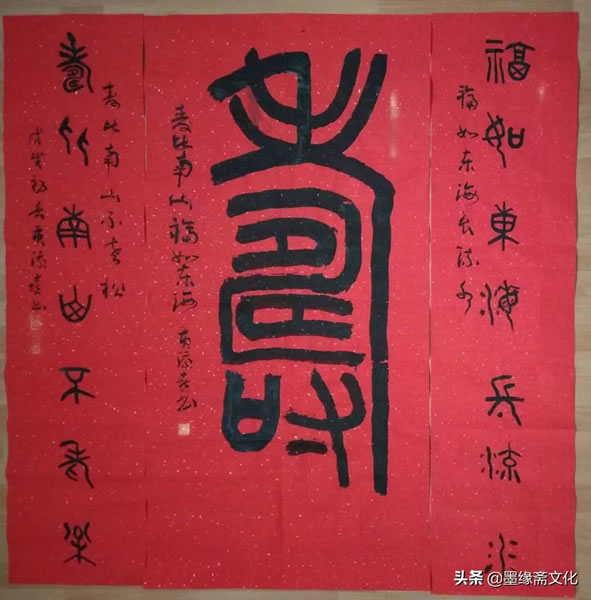 福如東海長流水
福如东海长流水
壽
寿比南山福如东海
壽比南山不老松
寿比南山不老松
戊戌初春
头条 @墨缘斋文化